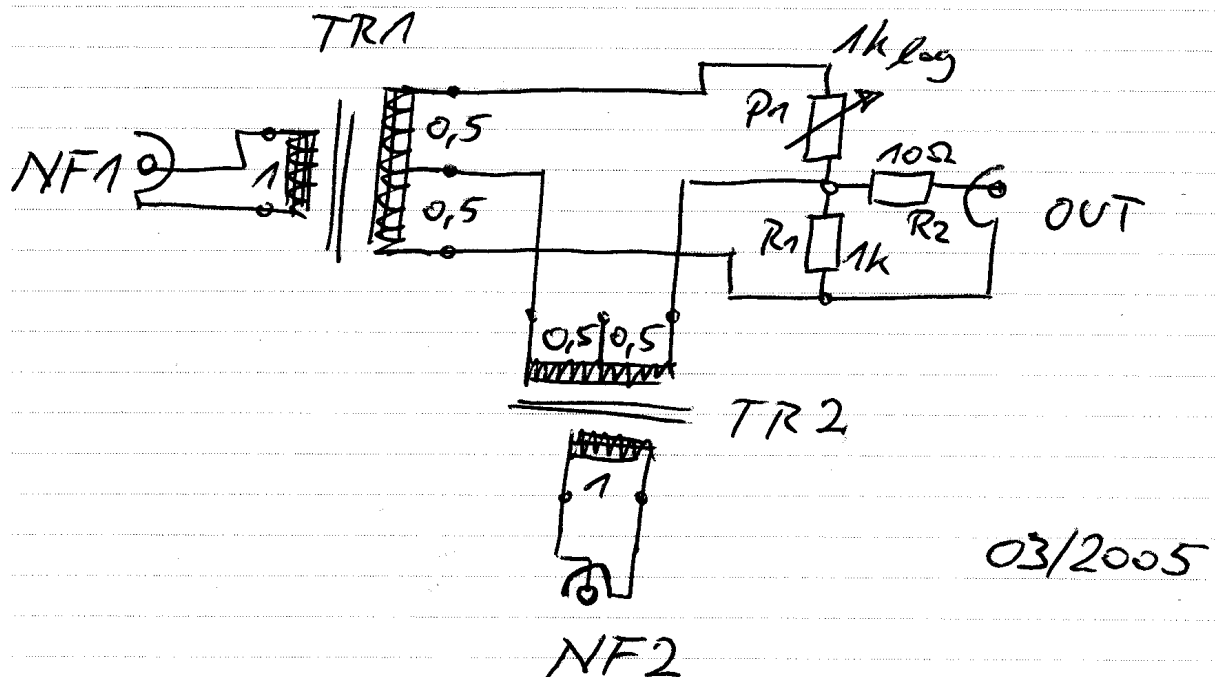 TR1
1k log
P1
NF1
1
0,5
0,5
10Ω
R2
OUT
R1
1k
0,5
0,5
TR2
1
03/2005
NF2